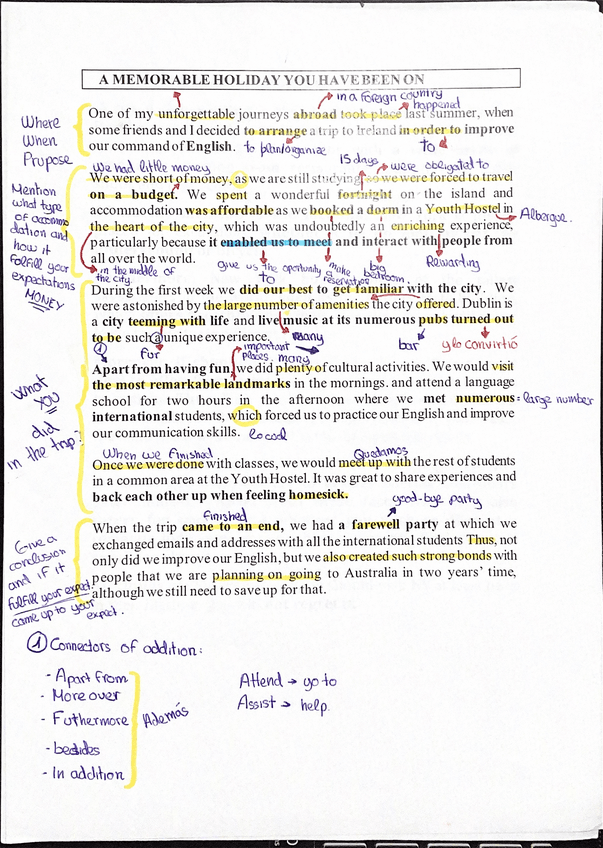 A MEMORABLE HOLIDAY YOU HAVE BEEN ON
in a foreign country
happened
One of my unforgettable journeys abroad took place last summer, when
some friends and I decided to arrange a trip to Ireland in order to improve
our command of English. to plan/organize
TO
Where
When
Propose
We had little money
15 days
were obligated to
We were short of money, as we are still studying, so we were forced to travel
on a budget. We spent a wonderful fortnight on the island and
accommodation was affordable as we booked a dorm in a Youth Hostel in
the heart of the city, which was undoubtedly an enriching experience,
particularly because it enabled us to meet and interact with people from
all over the world.
Albergue.
in the middle of
the city.
give us the oportunity
TO
make
reservation
big
bedroom.
Rewarding
Mention
what type
of accommo
dation and
how it
fulfill your
expectations
MONEY
During the first week we did our best to get familiar with the city. We
were astonished by the large number of amenities the city offered. Dublin is
a city teeming with life and live music at its numerous pubs turned out
to be such a unique experience.
many
1
fur
important
places.
many
bar
y lo convirtió
Apart from having fun, we did plenty of cultural activities. We would visit
the most remarkable landmarks in the mornings. and attend a language
school for two hours in the afternoon where we met numerous = large number
international students, which forced us to practice our English and improve
our communication skills.
What
YOU
did
in the trip?
When we finished
Quedamos
Once we were done with classes, we would meet up with the rest of students
in a common area at the Youth Hostel. It was great to share experiences and
back each other up when feeling homesick.
good-bye party
finished
When the trip came to an end, we had a farewell party at which we
exchanged emails and addresses with all the international students Thus, not
only did we improve our English, but we also created such strong bonds with
people that we are planning on going to Australia in two years' time,
although we still need to save up for that.
Give a
conclusion
and if it
fulfill your expect.
came up to your
expect.
1 Connectors of addition:
- Apart from
- Moreover
- Futhermore
- besides
- In addition
Además
Attend → go to
Assist → help.